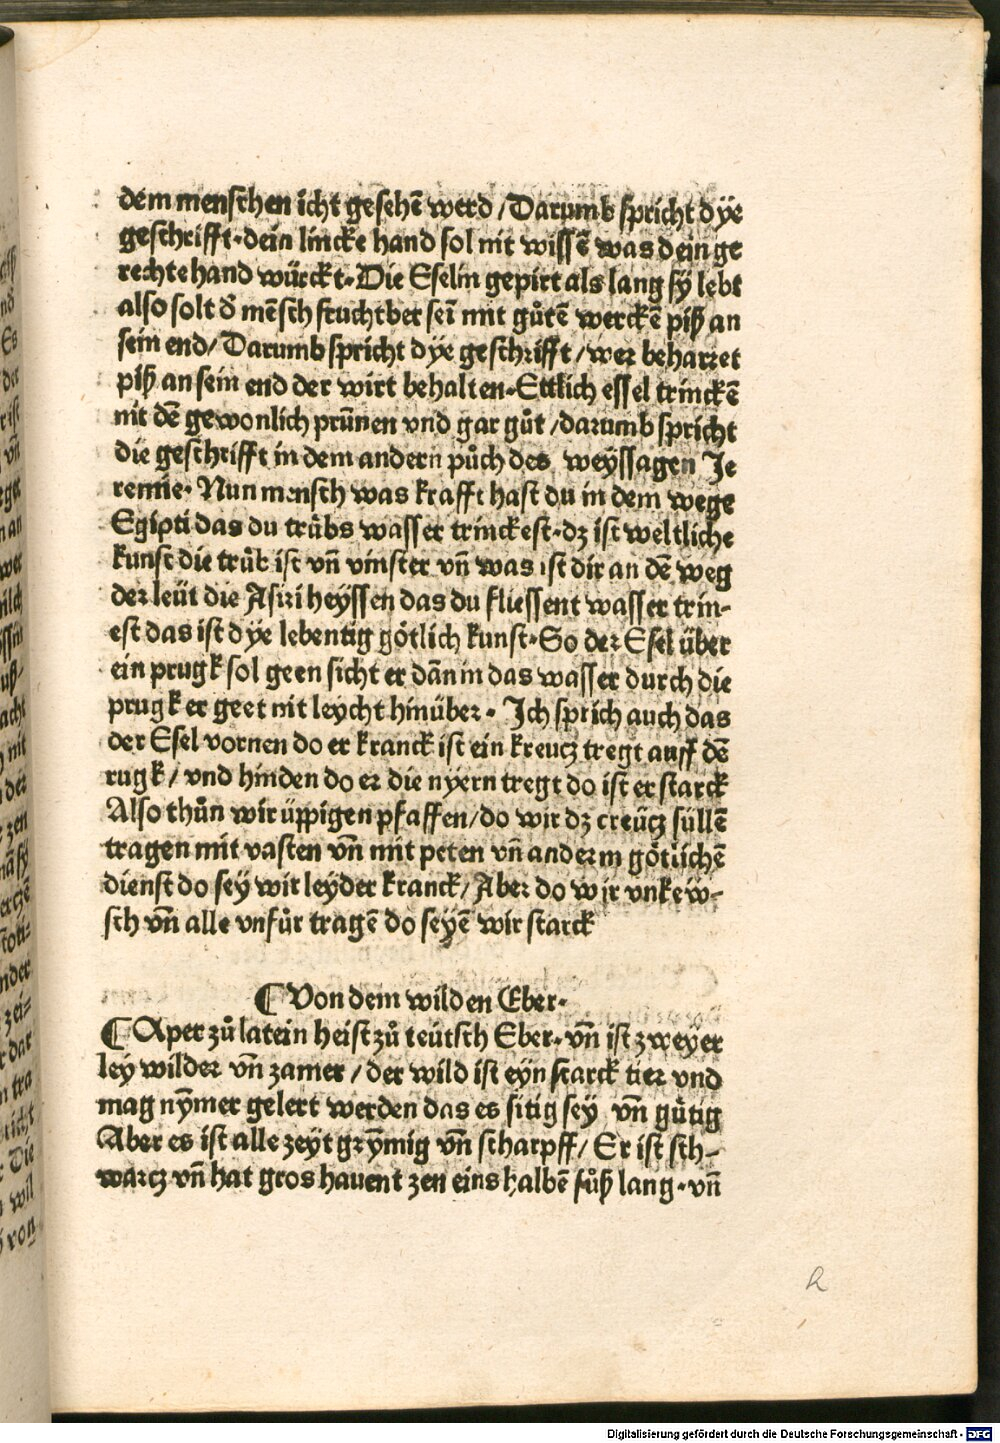 dem menschen icht gesehē werd / Darumb spricht dÿe
geschrifft · dein lincke hand sol nit wissē was dein ge
rechte hand würckt · Die Eselin gepirt als lang sÿ lebt
also solt ð mēsch fruchtber sei᷑ mit gůtē werckē piß an
sein end / Darumb spricht dÿe geschrifft / wer beharret
piß an sein end der wirt behalten · Ettlich essel trinckē
nit dē gewonlich prūnen vnd gar gůt / darumb spricht
die geschrifft in dem andern půch des weÿssagen Je
remie · Nun mensch was krafft hast du in dem wege
Egipti das du trůbs wasser trinckest · dz ist weltliche
kunst die trůb ist vn̄ vinster vn̄ was ist dir an dē weg
der leüt die Asiri heÿssen das du fliessent wasser trin-
est das ist dÿe lebentig götlich kunst · So der Esel über
ein prugk sol geen sicht er dān in das wasser durch die
prugk er geet nit leycht hinüber · Ich sprich auch das
der Esel vornen do er kranck ist ein kreucz tregt auff dē
rugk / vnd hinden do er die nyern tregt do ist er starck
Also thůn wir üppigen pfaffen / do wir dz creücz süllē
tragen mit vasten vn̄ mit peten vn̄ anderm götlichē
dienst do sey wir leyder kranck / Aber do wir vnkew-
sch vn̄ alle vnfůr tragē do seyē wir starck
¶ Von dem wilden Eber ·
¶ Aper zů latein heist zů teütsch Eber · vn̄ ist zweyer
ley wilder vn̄ zamer / der wild ist eyn starck tier vnd
mag nȳmer gelert werden das es sitig sey vn̄ gůtig
Aber es ist alle zeyt grȳmig vn̄ scharpff / Er ist sch-
warcz vn̄ hat gros hauent zen eins halbē fůß lang · vn̄
Digitalisierung gefördert durch die Deutsche Forschungsgemeinschaft - DFG